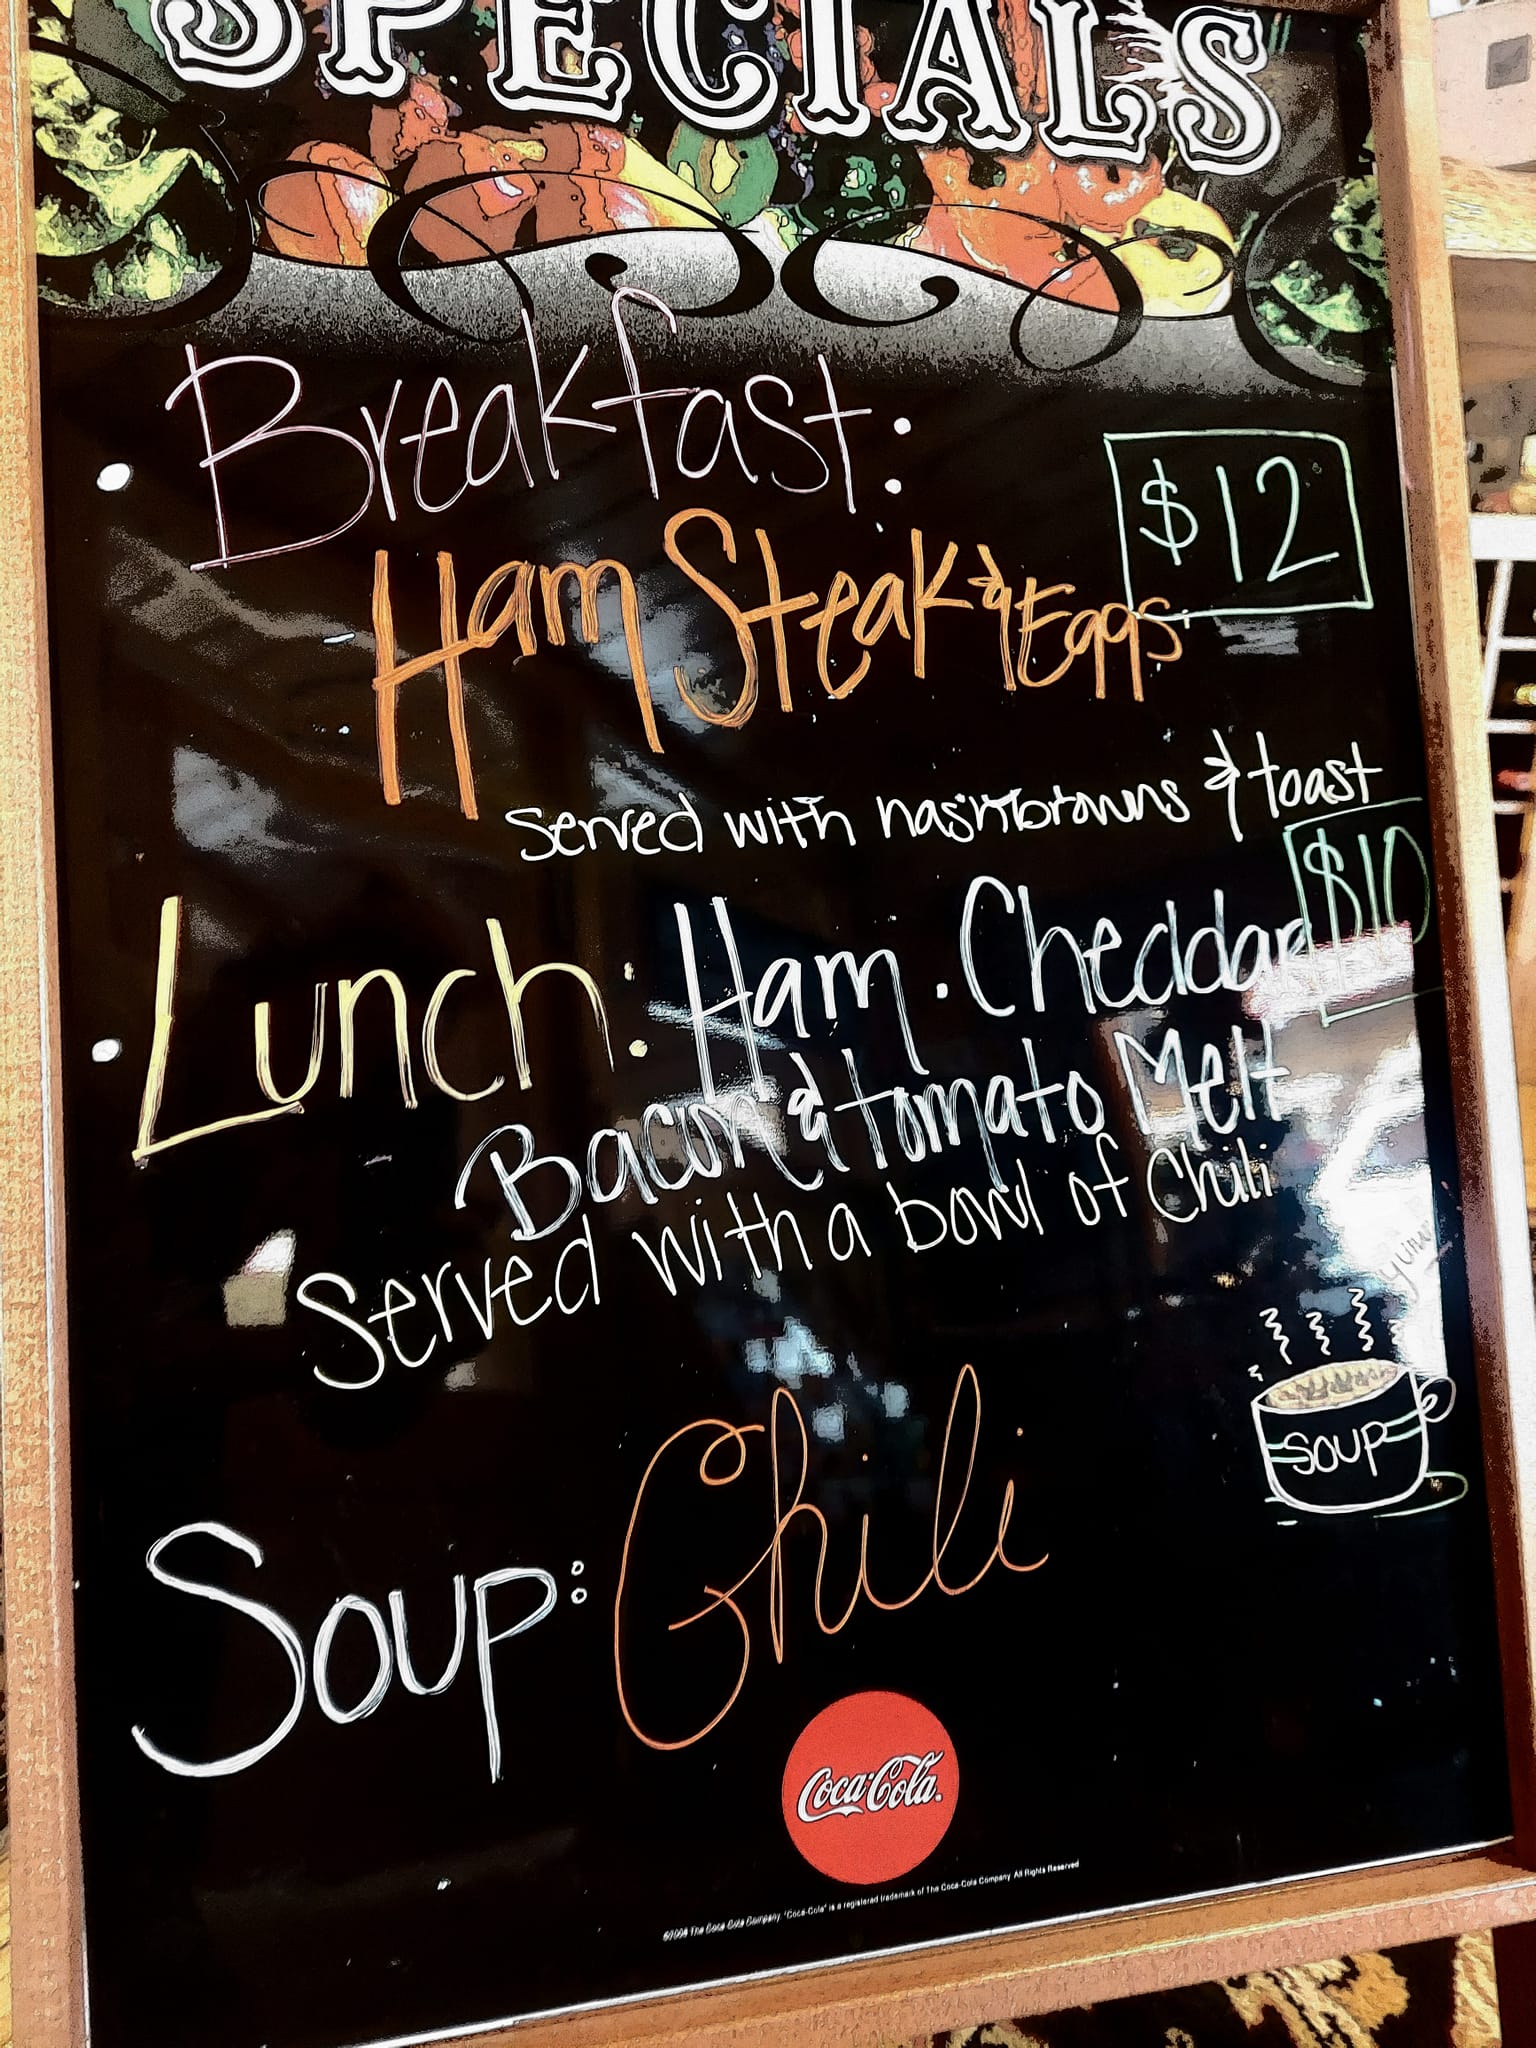 SPECIALS
• Breakfast:
$12
Ham Steak & Eggs
Served with hashbrowns & toast
$10
• Lunch: Ham. Cheddar
Bacon & tomato Melt
Served with a bowl of Chili
SOUP
Soup: Chili
Coca-Cola
©2008 The Coca-Cola Company. "Coca-Cola" is a registered trademark of The Coca-Cola Company. All Rights Reserved